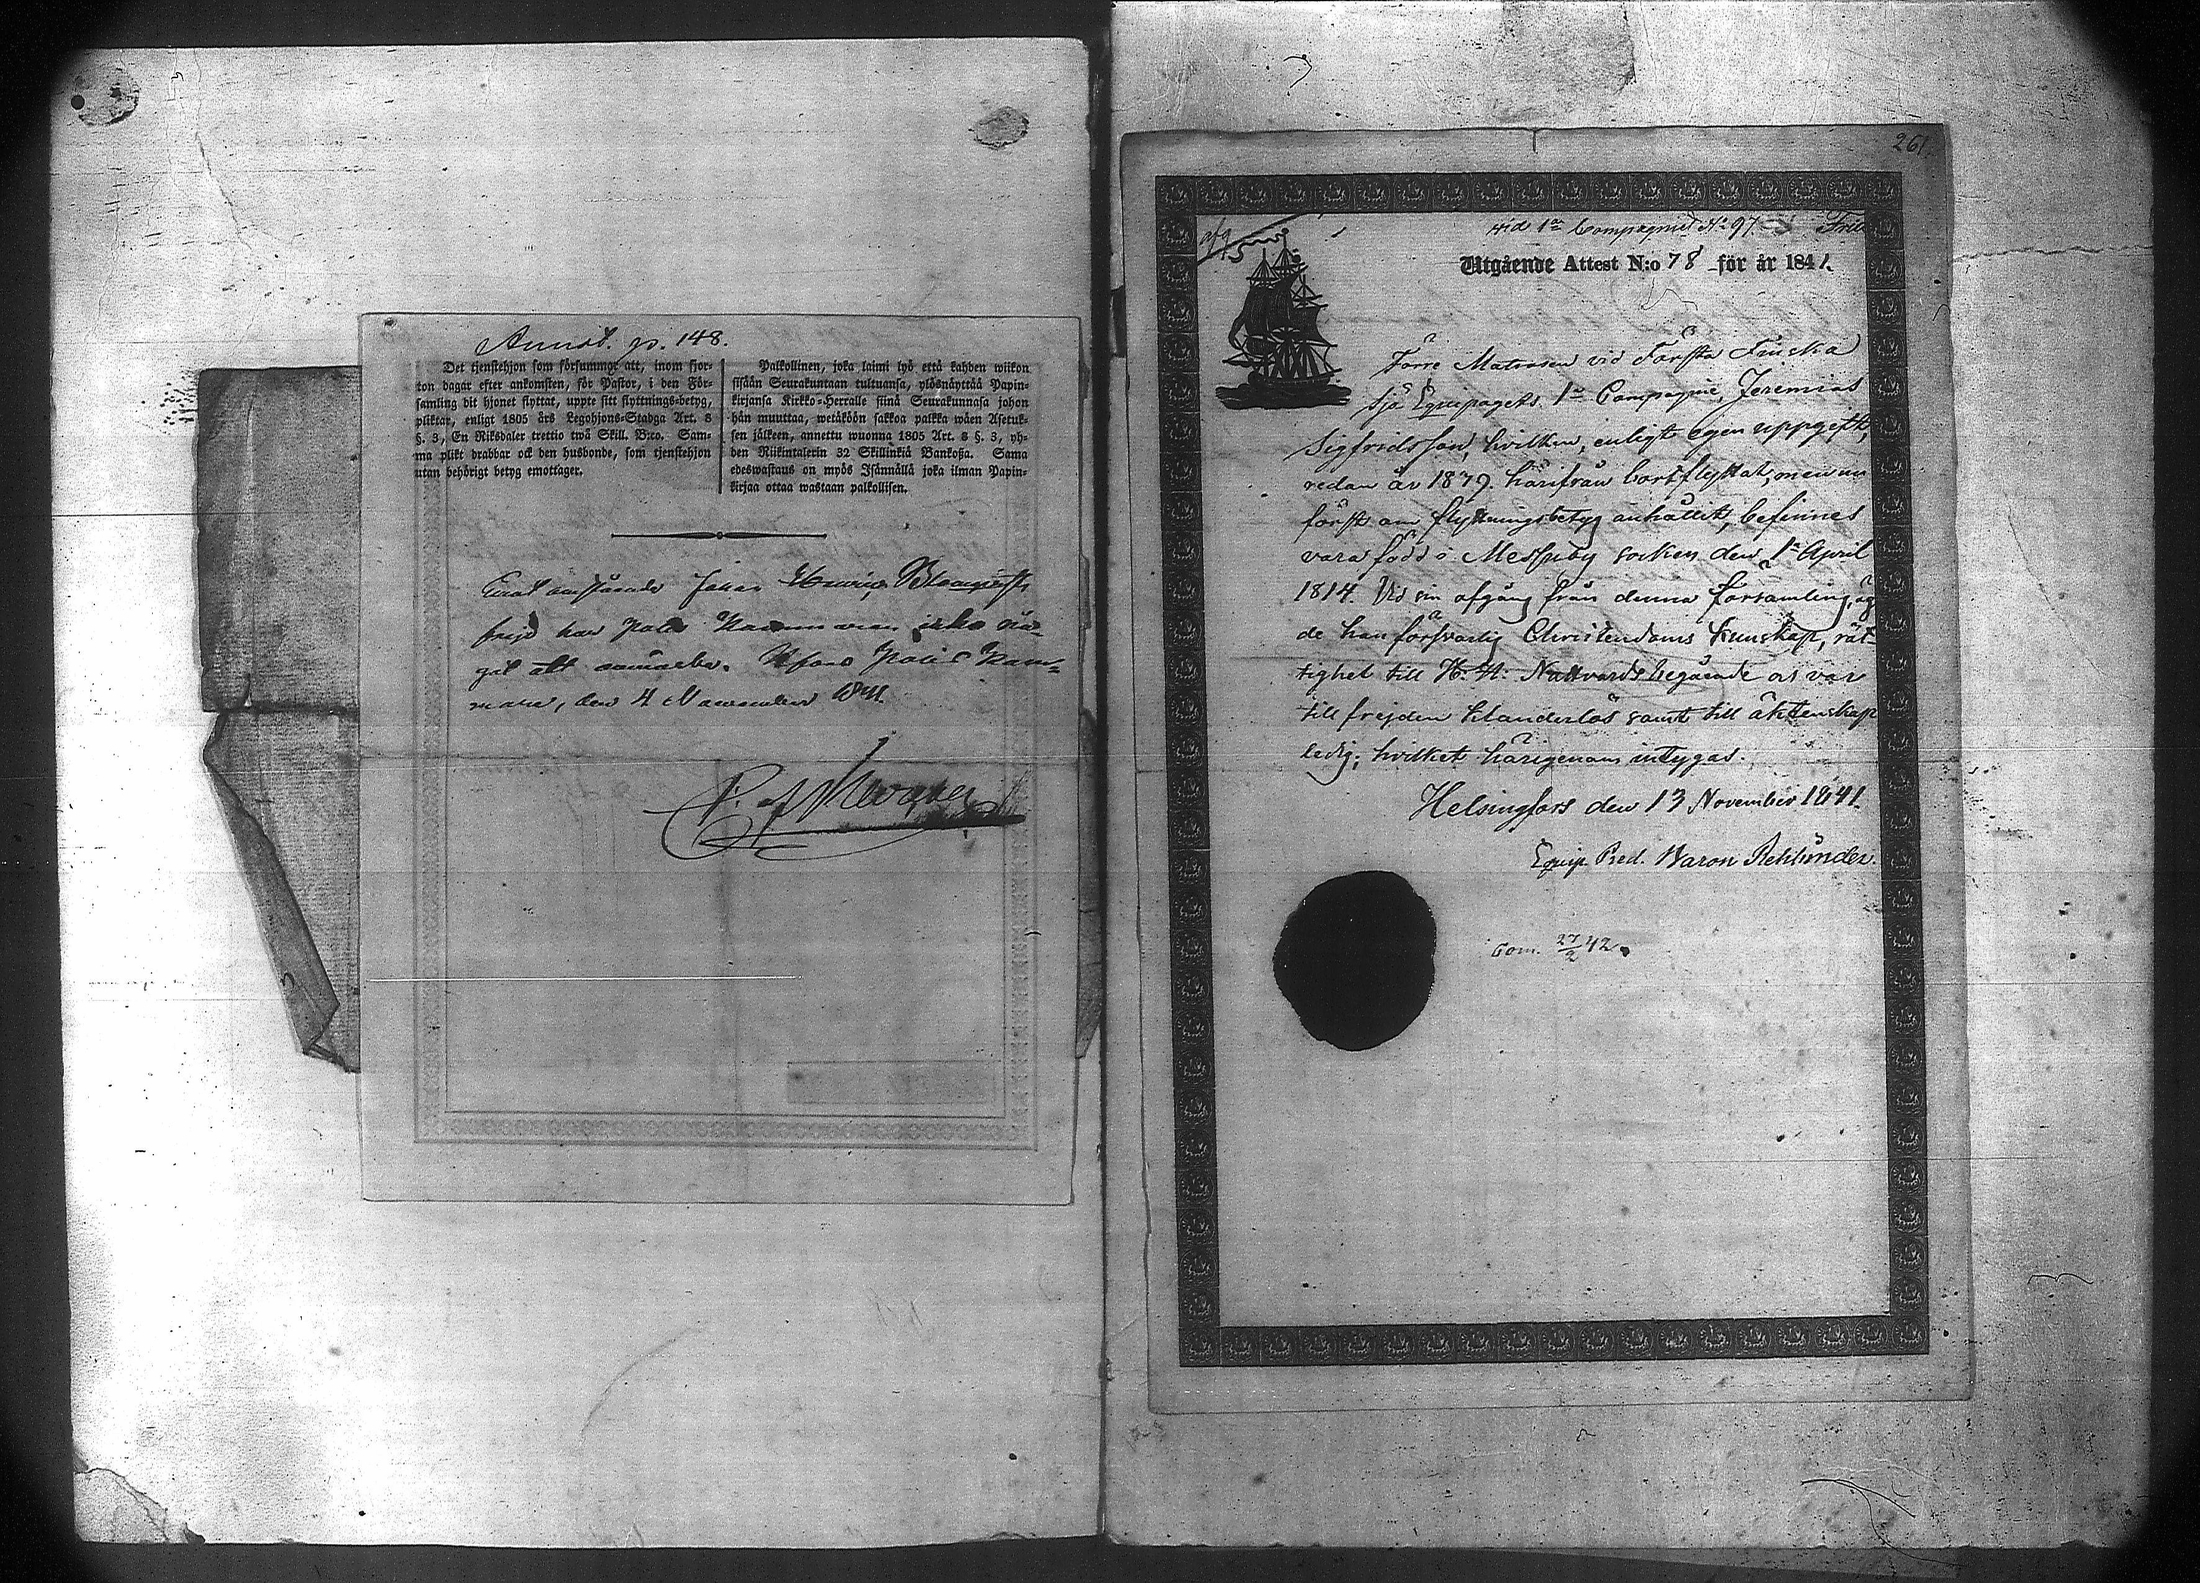 Annot. p. 148.
Det tjenstehjon som försummar att, inom fjor-
ton dagar efter ankomsten, för Pastor, i den För-
samling dit hjonet flyttat, uppte sitt flyttnings-betyg,
pliktar, enligt 1805 års Legohjons-Stadga Art. 8
§. 3, En Riksdaler trettio twå Skill. B:co. Sam-
ma plikt drabbar ock den husbonde, som tjenstehjon
utan behörigt betyg emottager.
Palkollinen, joka laimi lyö että kahden wiikon
sisään Seurakuntaan tultuansa, ylösnäyttää Papin-
kirjansa Kirkko-Herralle siinä Seurakunnasa johon
hän muuttaa, wetäköön sakkoa palkka wäen Asetuk-
sen jälkeen, annettu wuonna 1805 Art. 8 §. 3, yh-
den Riikintalerin 32 Skillinkiä Bankoßa. Sama
edeswastaus on myös Isännällä joka ilman Papin-
kirjaa ottaa wastaan palkollisen.
Emot omstående Johan Henric Blomqvists
frejd har Polis Kammaren icke nå-
got att anmärka. Åbo Polis Kam-
mare, den 4 November 1841.
261
vid 1a Compagniet No 97
Utgående Attest N:o 78 för år 1841.
Förre Matrosen vid Första Finska
Sjö Equipagets 1a Compagnie, Jeremias
Sigfridsson, hvilken, enligt egen uppgift,
redan år 1839 härifrån bortflyttat, men nu
först om flyttningsbetyg anhållit, befinnes
vara född i Messuby socken den 1 April
1814. Vid sin afgång från denna församling, äg
de han försvarlig Christendoms kunskap, rät-
tighet till H. H. Nattvards begående och var
till frejden klanderlös samt till äktenskap
ledig; hvilket härigenom intygas.
Helsingfors den 13 November 1841.
Equip. Pred. Aaron Rehbinder.
Com. 27/2 42.